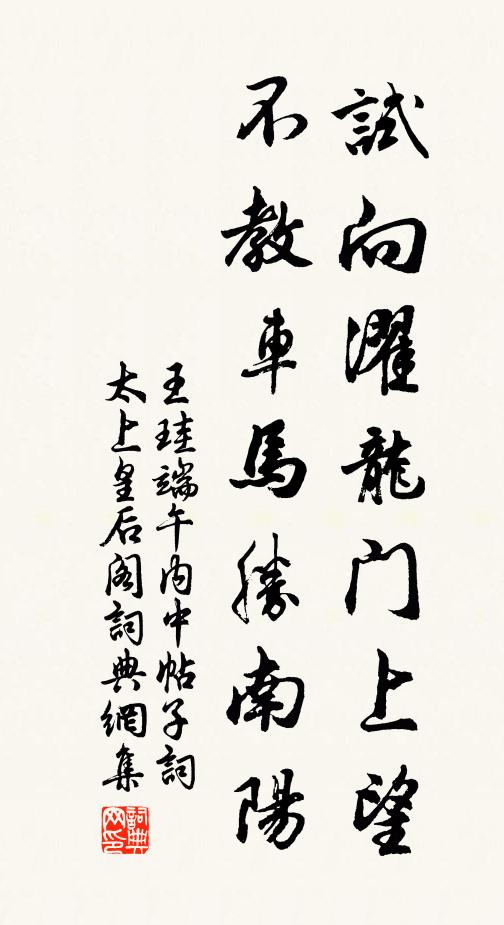 試向濯龍門上望
不教車馬勝南陽
王珪端午内中帖子詞
太上皇后阁詞典網集
詞典网印